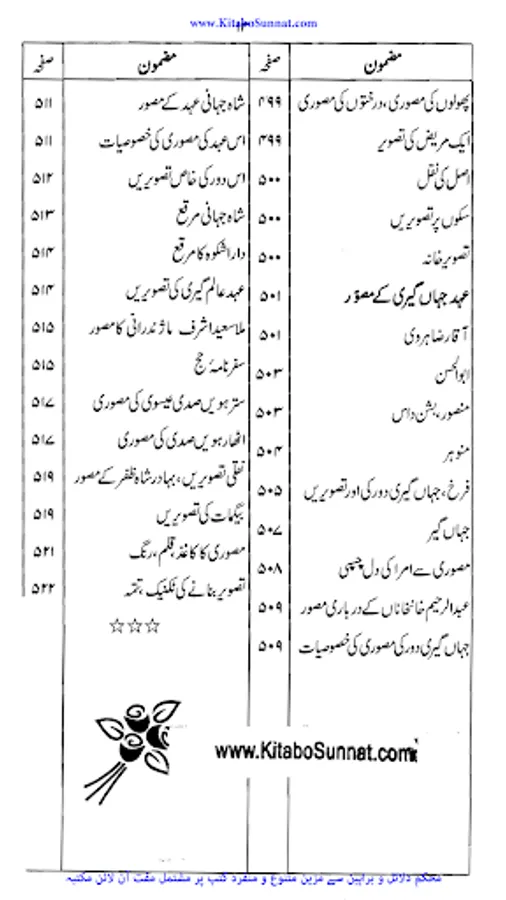 www.KitaboSunnat.com
مضمون صفحہ
پھولوں کی مصوری، درختوں کی مصوری ۴۹۹
ایک مریض کی تصویر ۴۹۹
اصل کی نقل ۵۰۰
سکوں پر تصویریں ۵۰۰
تصویر خانہ ۵۰۰
عہد جہاں گیری کے مصور ۵۰۱
آقا رضا ہروی ۵۰۱
ابوالحسن ۵۰۳
منصور، بشن داس ۵۰۳
منوہر ۵۰۴
فرخ، جہاں گیری دور کی اور تصویریں ۵۰۵
جہاں گیر ۵۰۷
مصوری سے امرا کی دل چسپی ۵۰۸
عبدالرحیم خانخاناں کے درباری مصور ۵۰۹
جہاں گیری دور کی مصوری کی خصوصیات ۵۰۹
مضمون صفحہ
شاہ جہانی عہد کے مصور ۵۱۱
اس عہد کی مصوری کی خصوصیات ۵۱۱
اس دور کی خاص تصویریں ۵۱۲
شاہ جہانی مرقع ۵۱۳
دارا شکوہ کا مرقع ۵۱۴
عہد عالم گیری کی تصویریں ۵۱۴
ملا سعید اشرف ماژندرانی کا مصور ۵۱۵
سفر نامۂ حج ۵۱۵
سترہویں صدی عیسوی کی مصوری ۵۱۷
اٹھارہویں صدی کی مصوری ۵۱۷
نقلی تصویریں، بہادر شاہ ظفر کے مصور ۵۱۹
بیگمات کی تصویریں ۵۱۹
مصوری کا کاغذ، قلم، رنگ ۵۲۱
تصویر بنانے کی ٹکنیک، تتمہ ۵۲۲
☆☆☆
www.KitaboSunnat.com
محکم دلائل و براہین سے مزین متنوع و منفرد کتب پر مشتمل مفت آن لائن مکتبہ